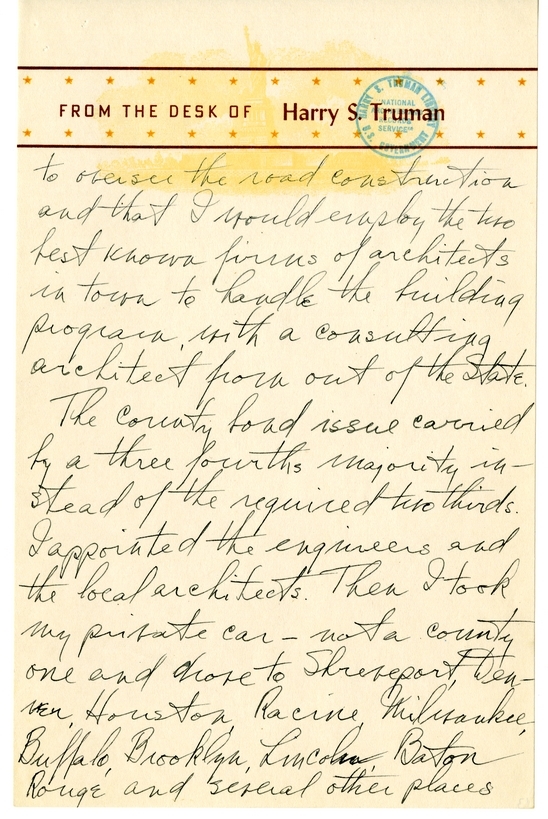 FROM THE DESK OF Harry S. Truman
HARRY S. TRUMAN LIBRARY
NATIONAL
SERVICE
U.S. GOVERNMENT
to oversee the road construction
and that I would employ the two
best known firms of architects
in town to handle the building
program, with a consulting
architect from out of the State.
The county bond issue carried
by a three fourths majority in-
stead of the required two thirds.
I appointed the engineers and
the local architects. Then I took
my private car - not a county
one and drove to Shreveport, Den-
ver, Houston, Racine, Milwaukee,
Buffalo, Brooklyn, Lincoln, Baton
Rouge and several other places